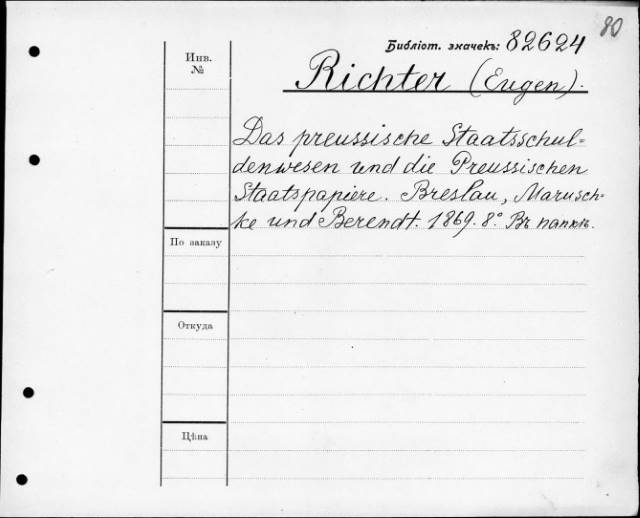 80
Библіот. значекъ: 82624
Инв.
№
Richter (Eugen).
Das preussische Staatsschul=
denwesen und die Preussischen
Staatspapiere. Breslau, Marusch-
ke und Berendt. 1869. 8.° Въ папкѣ.
По заказу
Откуда
Цѣна